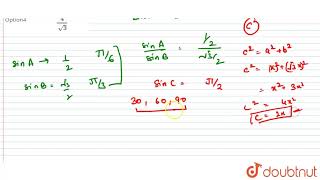 Option4 4/√3
sin A → 1/2 π/6
sin B = √3/2 π/3
sin A / sin B = 1/2 / √3/2
sin C = π/2
30, 60, 90
C
c² = a² + b²
c² = (x)² + (√3x)²
= x² + 3x²
c² = 4x²
c = 2x
doubtnut